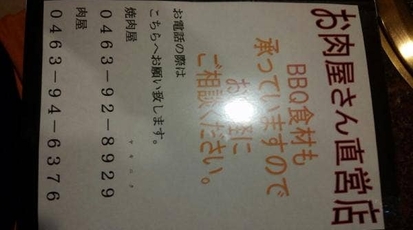 お肉屋さん直営店
BBQ食材も
承っていますので
お気軽に
ご相談ください。
お電話の際は
こちらへお願い致します。
焼肉屋
0463-92-8929
ヤキニク
肉屋
0463-94-6376